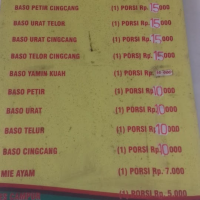 BASO PETIR CINGCANG (1) PORSI Rp. 15.000
BASO URAT TELOR (1) PORSI Rp. 15.000
BASO URAT CINGCANG (1) PORSI Rp. 15.000
BASO TELOR CINGCANG (1) PORSI Rp. 15.000
BASO YAMIN KUAH (1) PORSI Rp.
BASO PETIR (1) PORSI Rp. 10.000
BASO URAT (1) PORSI Rp. 10.000
BASO TELOR (1) PORSI Rp. 10.000
BASO CINGCANG (1) PORSI Rp. 10.000
MIE AYAM (1) PORSI Rp. 7.000
(1) PORSI Rp. 5.000